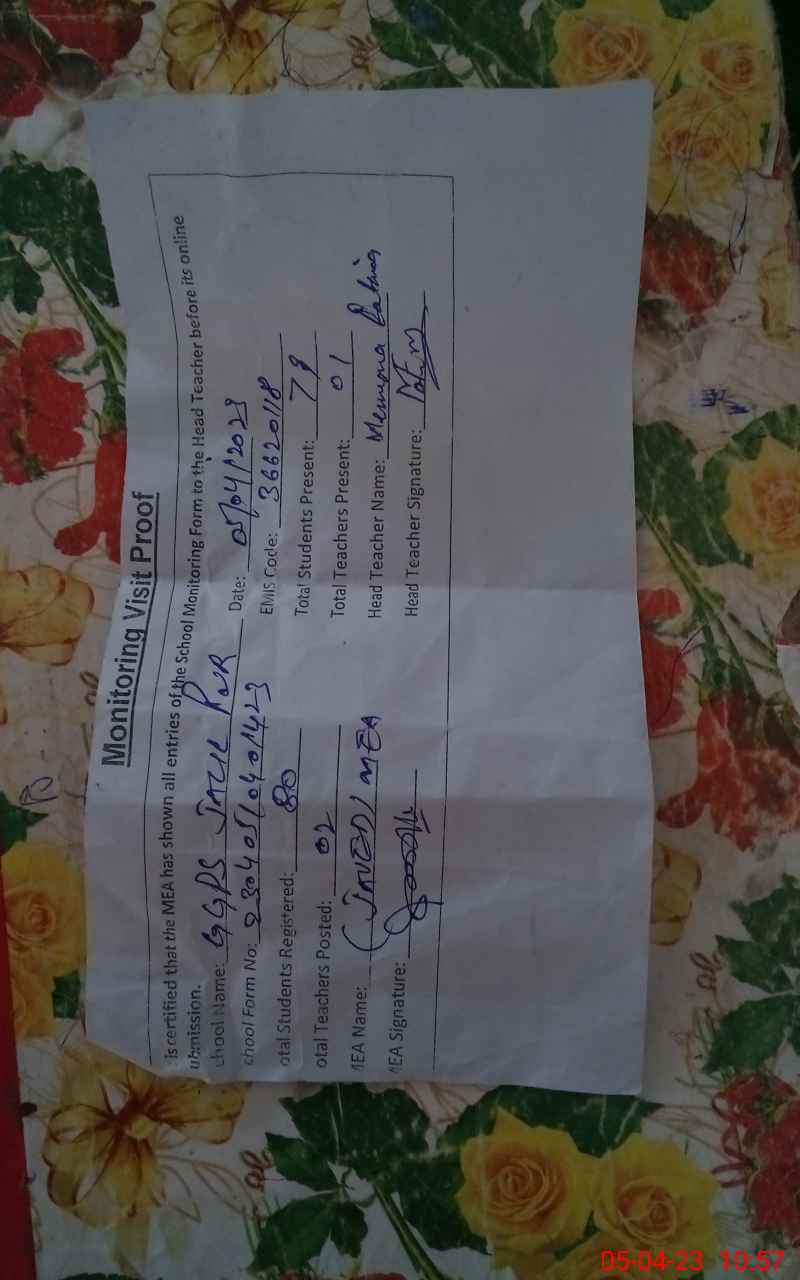 Monitoring Visit Proof
is certified that the MEA has shown all entries of the School Monitoring Form to the Head Teacher before its online
ubmission.
chool Name: GGPS Date: 05/04/2023
chool Form No: 23040510401423 EMIS Code: 36620118
otal Students Registered: 80 Total Students Present: 79
otal Teachers Posted: 02 Total Teachers Present: 01
MEA Name: (JAVED) MEA Head Teacher Name: Memona
MEA Signature: Head Teacher Signature:
05-04-23 10:57